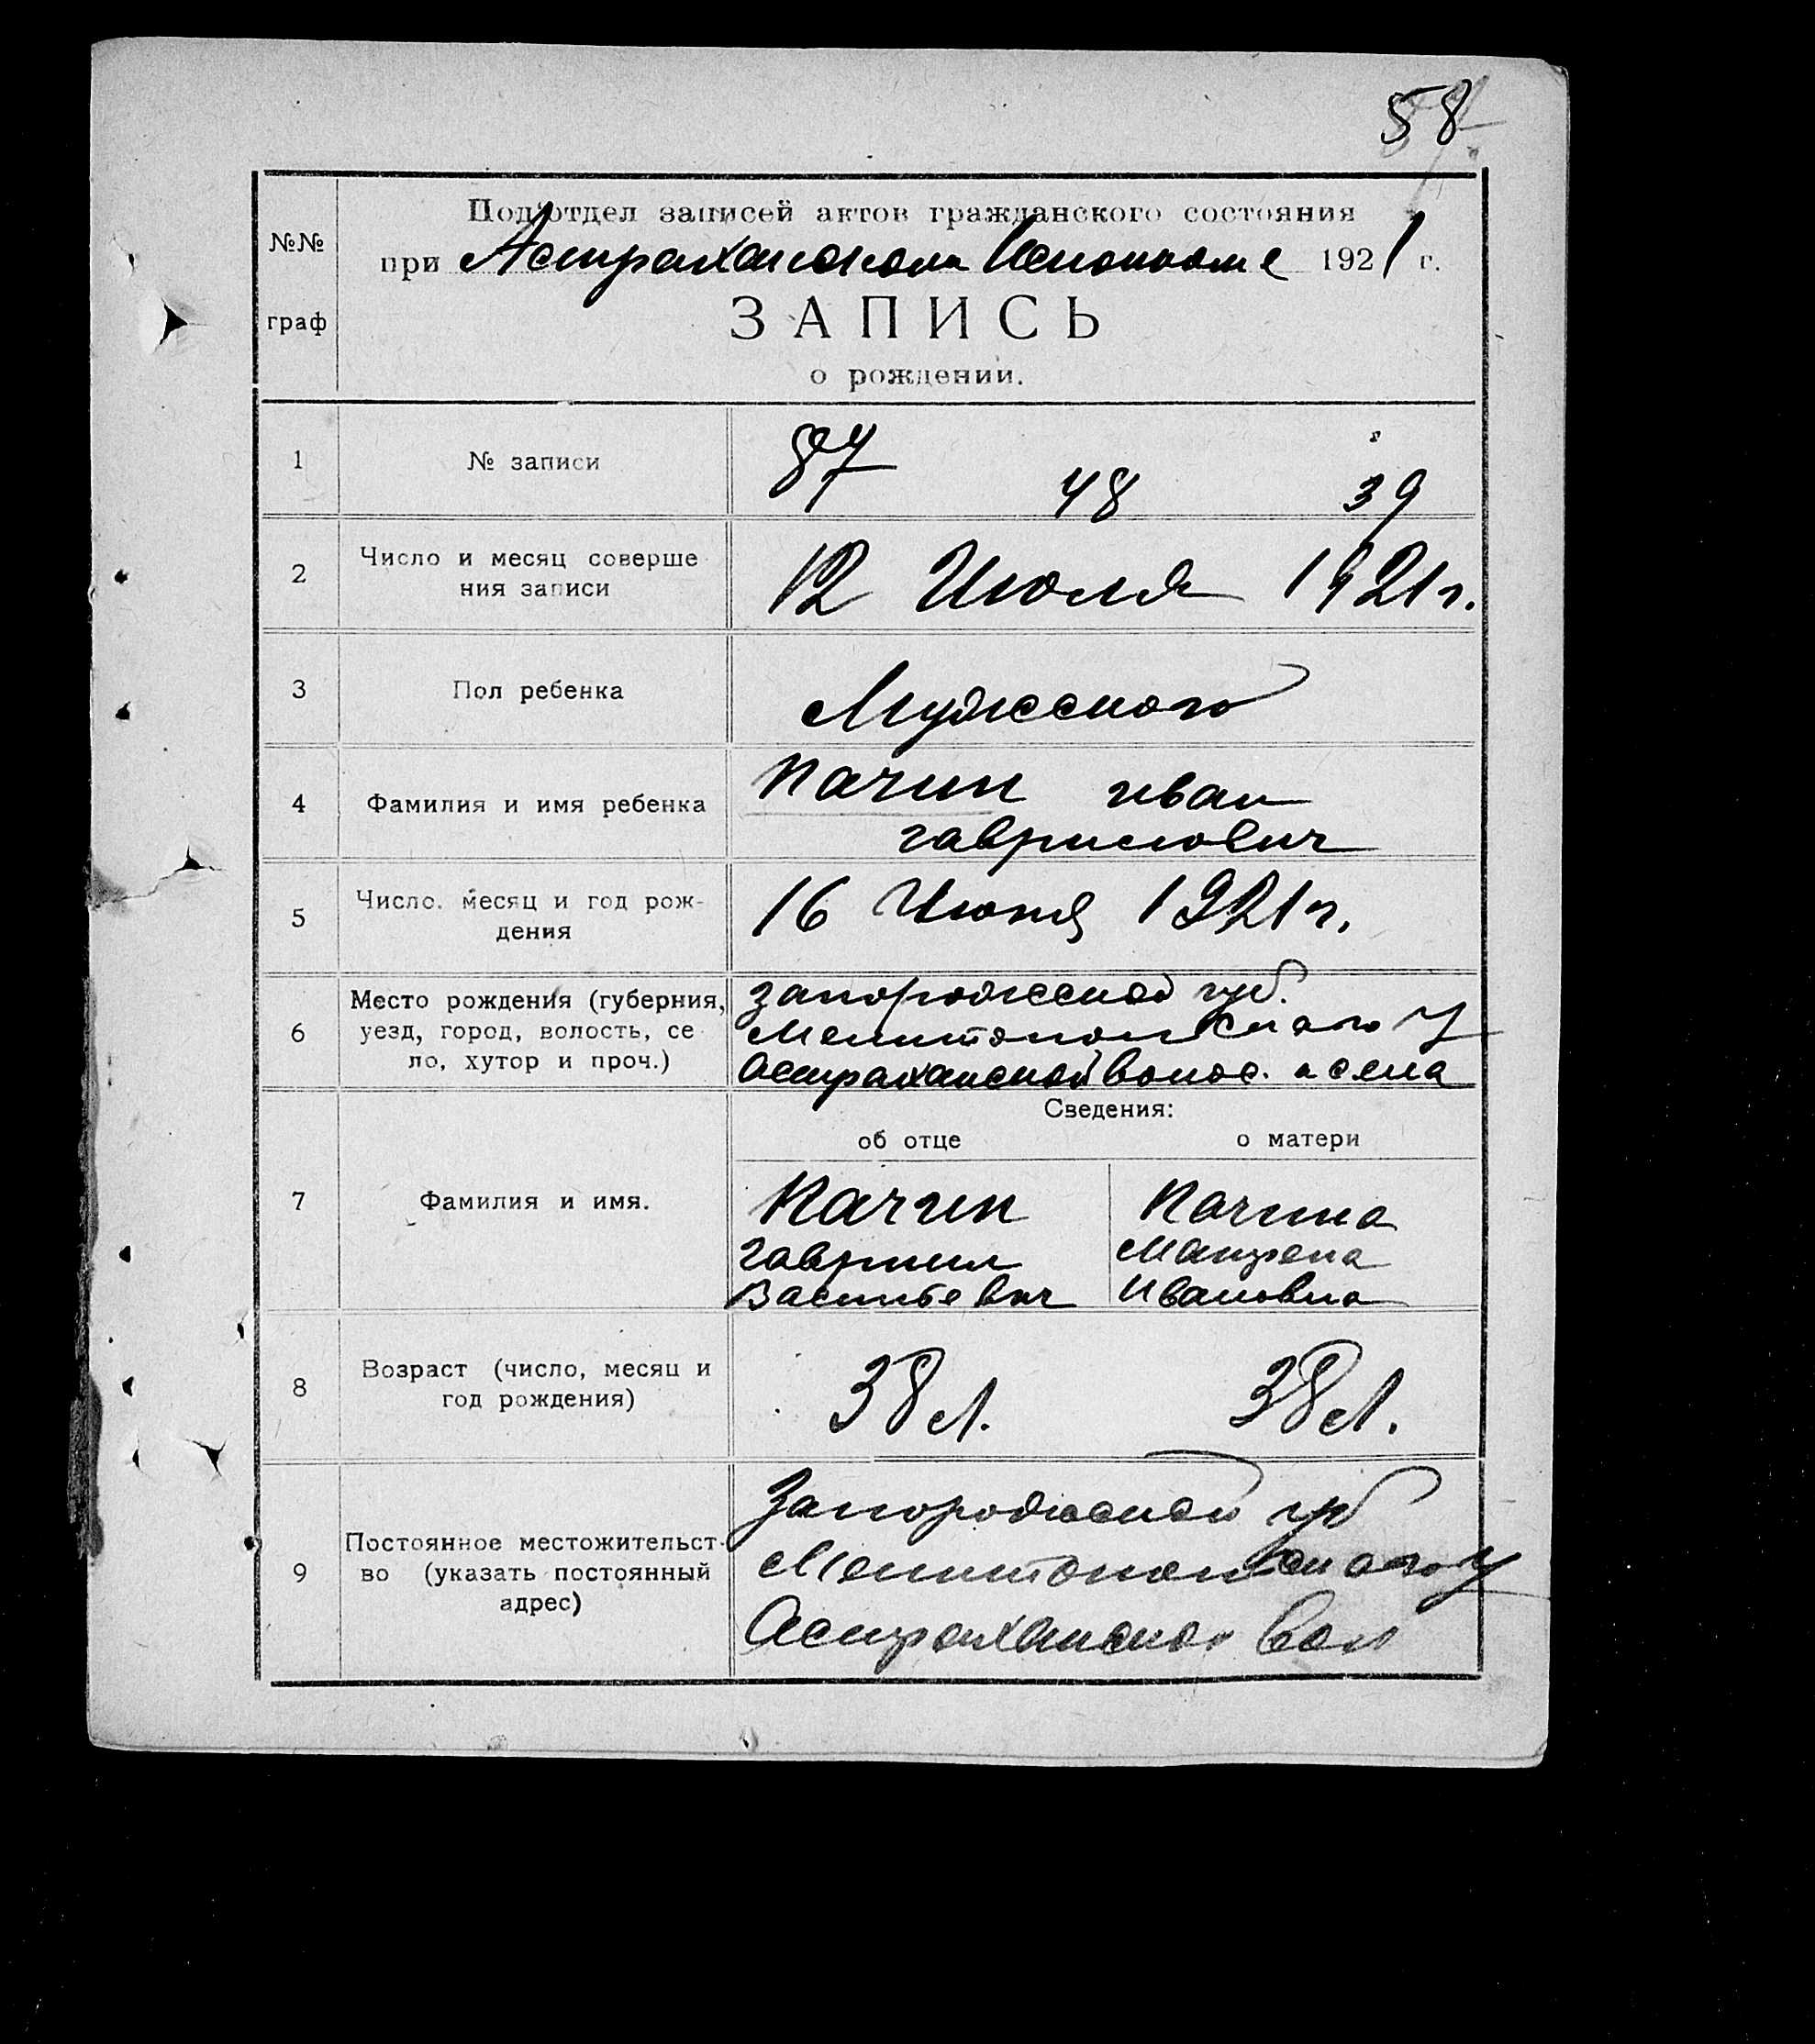 58
№№
граф
Подотдел записей актов гражданского состояния
при Астраханском Исполкоме 1921 г.
ЗАПИСЬ
о рождении.
1 № записи 87 48 39
2 Число и месяц соверше
ния записи 12 Июля 1921 г.
3 Пол ребенка Мужского
4 Фамилия и имя ребенка Качин иван
гаврилович
5 Число. месяц и год рож-
дения 16 Июня 1921 г.
6 Место рождения (губерния,
уезд, город, волость, се
ло, хутор и проч.)
Запорожской губ.
Мелитопольского у
Астраханской волос. и села
Сведения:
об отце о матери
7 Фамилия и имя.
Качин Качина
Гавриил Матрена
Васильевич Ивановна
8 Возраст (число, месяц и
год рождения) 38 л. 38 л.
9 Постоянное местожительст-
во (указать постоянный
адрес)
Запорожской губ
Мелитопольского у
Астраханской вол